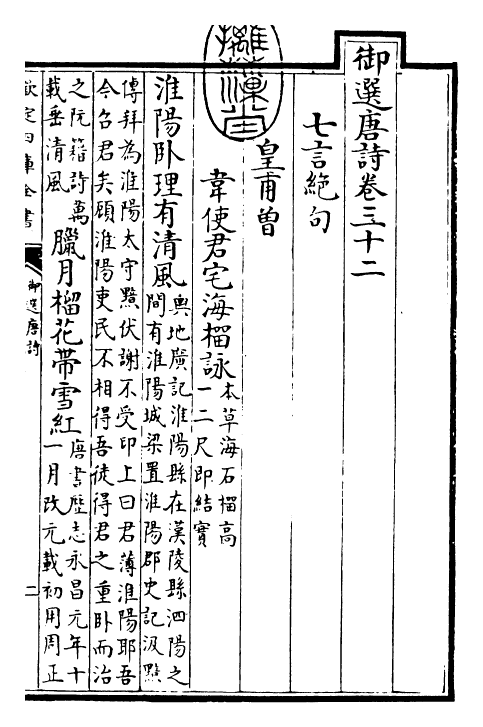 御選唐詩卷三十二
七言絶句
皇甫曾
韋使君宅海榴詠本草海石榴高
一二尺即結實
淮陽卧理有清風輿地廣記淮陽縣在漢陵縣泗陽之
間有淮陽城梁置淮陽郡史記汲黯
傳拜為淮陽太守黯伏謝不受印上曰君薄淮陽耶吾
今召君矣顧淮陽吏民不相得吾徒得君之重卧而治
之阮籍詩萬
載岳清風
臘月榴花帶雪紅唐書歷志永昌元年十
一月改元載初用周正
欽定四庫全書
御選唐詩